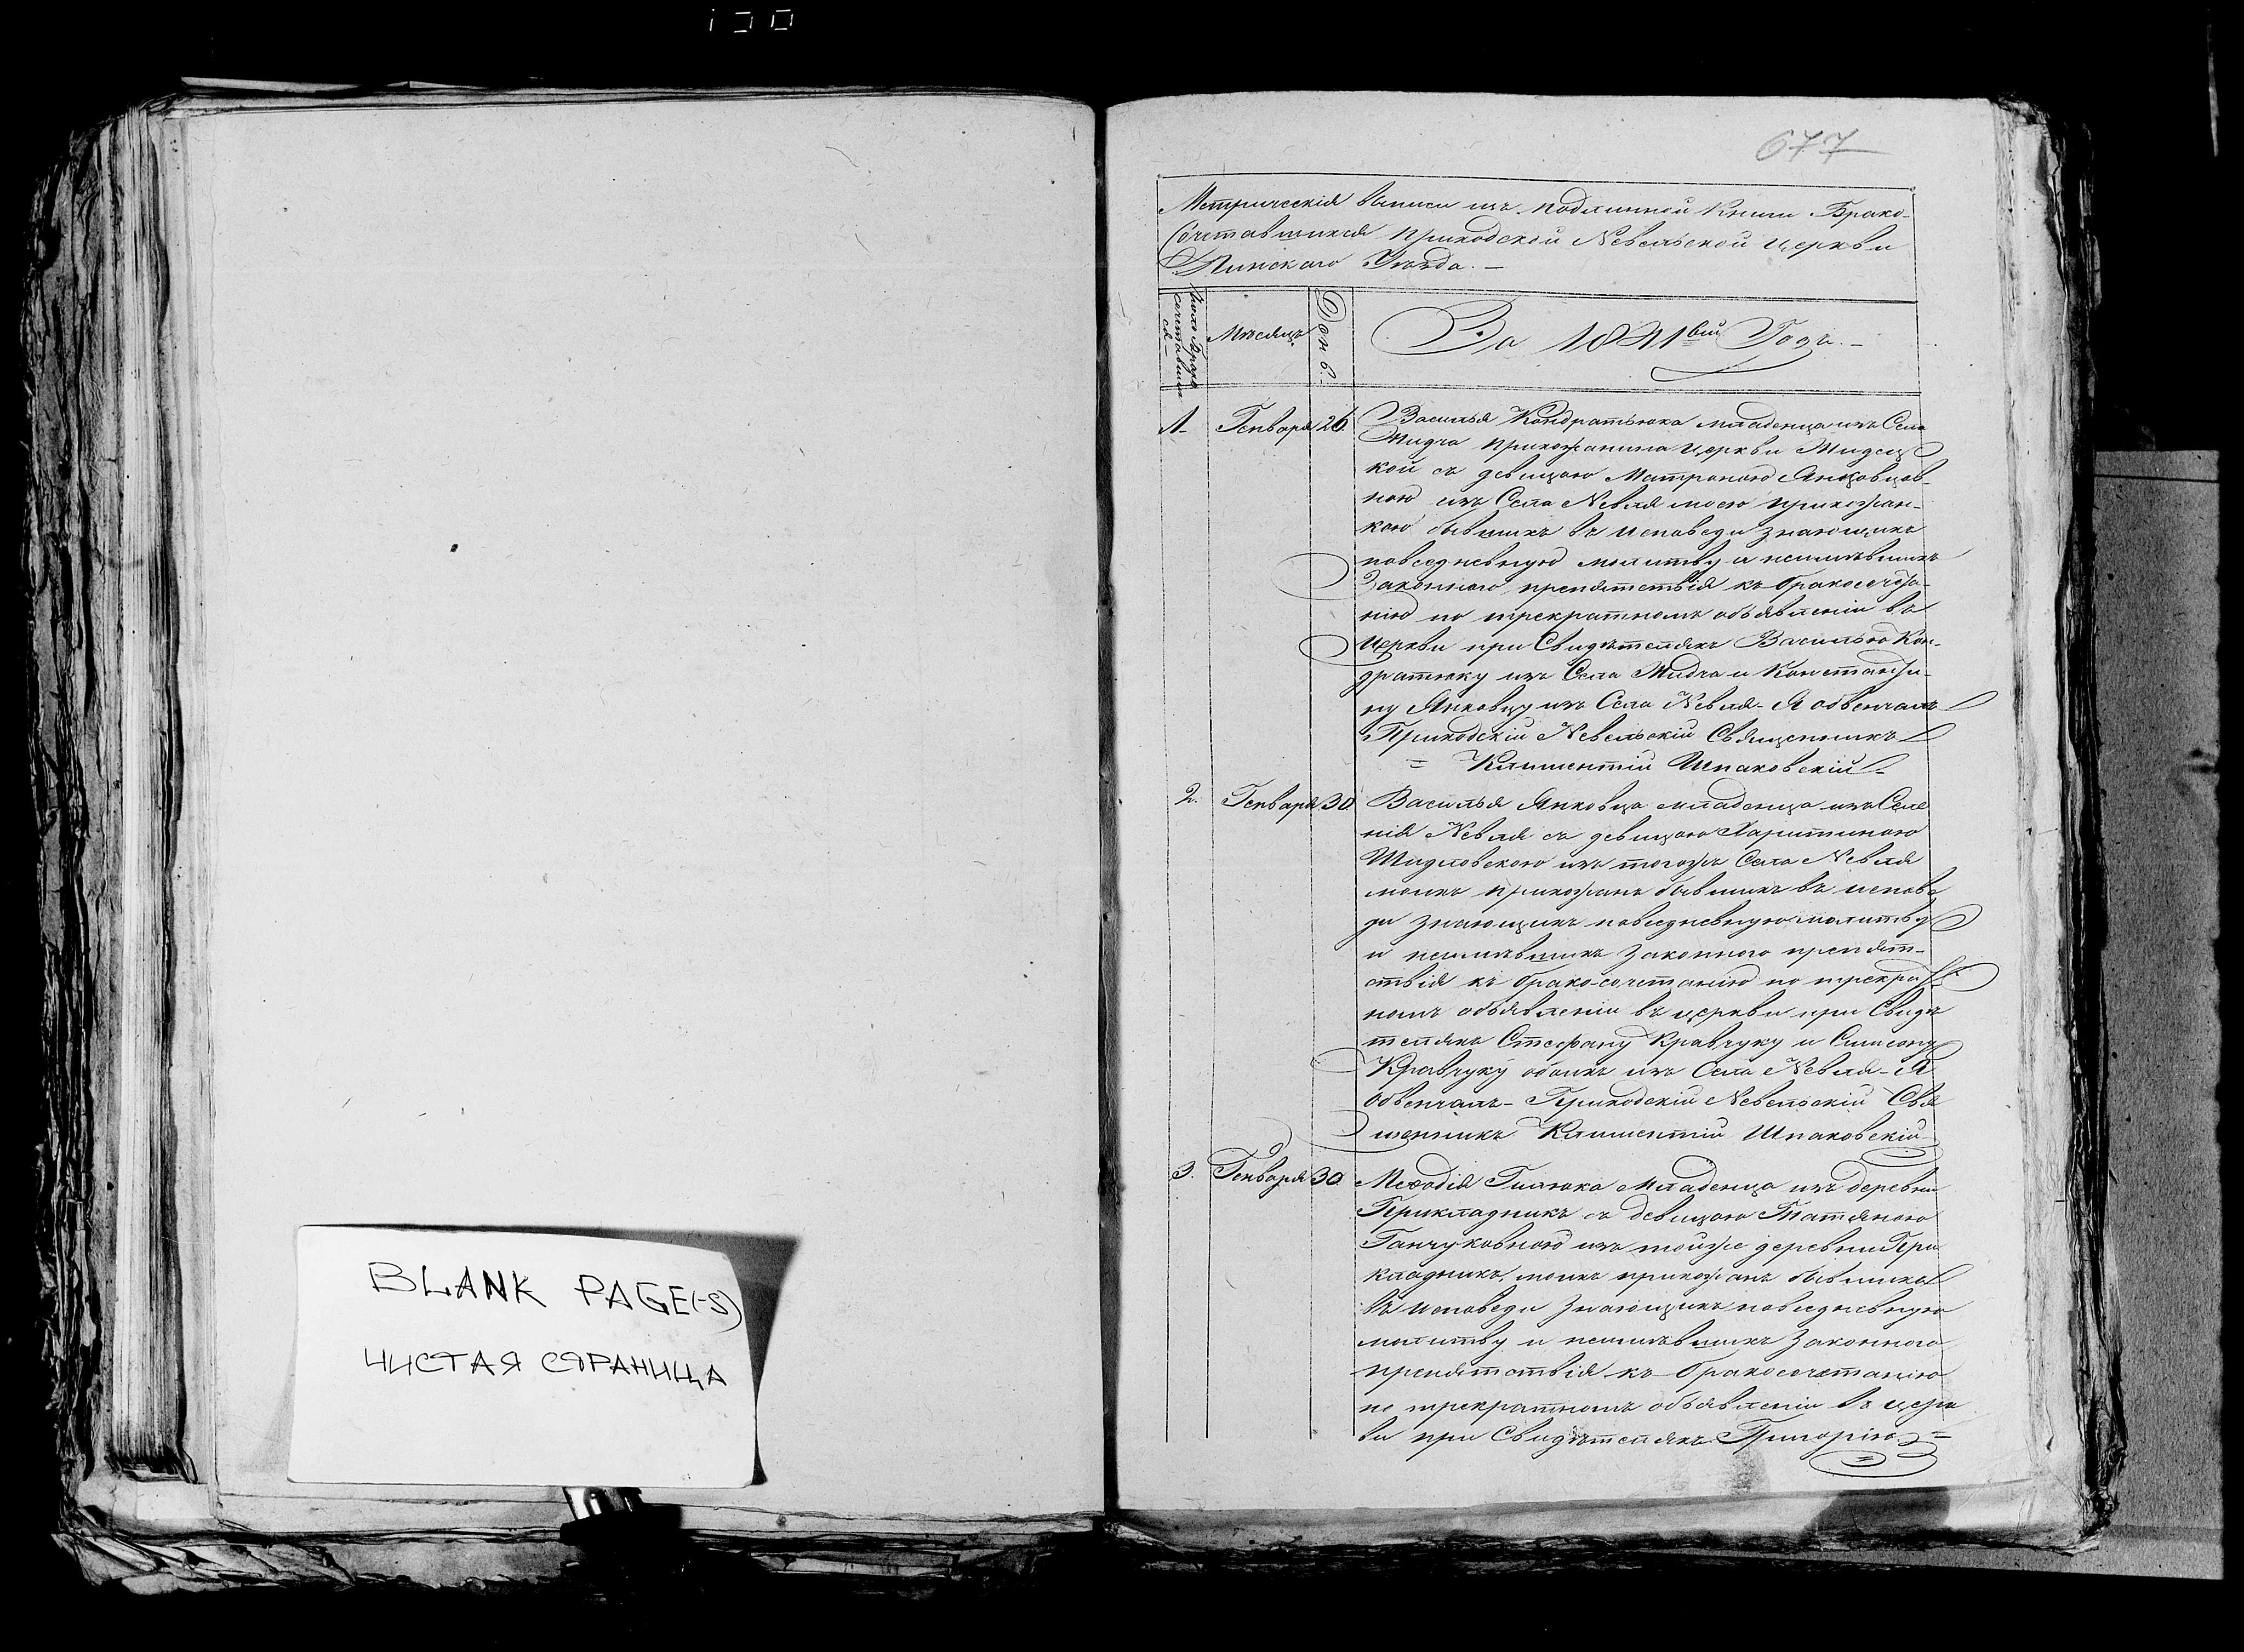 677
Метрическія выписи изъ подлинной Книги Брако-
сочетавшихся приходской Невельской церкви
Пинского Уезда. –
Число Брако
сочетавших
ся –
Мѣсяцъ.
День.
За 1841вый Годъ. –
1. Генваря 26. Василья Кондратюка младенца изъ Села
Жидча прихожанина церкви Жидец
кой съ девицою Матроною Янковцов-
ною изъ Села Невля моею прихожан-
кою бывшихъ въ исповеди знающихъ
повседневную молитву и неимѣвшихъ
Законного препятствія къ бракосочета-
нію по трекратномъ объявленіи въ
Церкви при Свидѣтеляхъ Василью Кон-
дратюку изъ Села Жидча и Константи-
ну Янковцу изъ Села Невля – Я обвенчалъ
Приходскій Невельскій Священникъ
= Климентій Шпаковскій –
2. Генваря 30. Василья Янковца младенца изъ Селе
нія Невля съ девицою Харитиною
Шидловскою изъ тогожъ Села Невля
моихъ прихожанъ бывшихъ въ испове
ди знающихъ повседневную молитву
и неимѣвшихъ Законного препят-
ствія къ брако-сочетанію по трекрат-
номъ объявленіи въ церкви при Свидѣ
теляхъ Стефану Кравчуку и Симеону
Кравчуку обоихъ изъ Села Невля – Я
Обвенчалъ – Приходскій Невельскій Свя
щенникъ Климентій Шпаковскій
3. Генваря 30. Меѳодія Гилюка Младенца изъ деревни
Прикладникъ съ девицою Татяною
Ганчуковною изъ тойже деревни При
кладникъ, моихъ прихожанъ бывшихъ
въ исповеди Знающихъ повседневную
молитву и неимѣвшихъ Законного
препятствія къ бракосочетанію
по трекратномъ объявленіи въ церк
ви при Свидѣтеляхъ Григорію =
BLANK PAGE(-S)
ЧИСТАЯ СТРАНИЦА